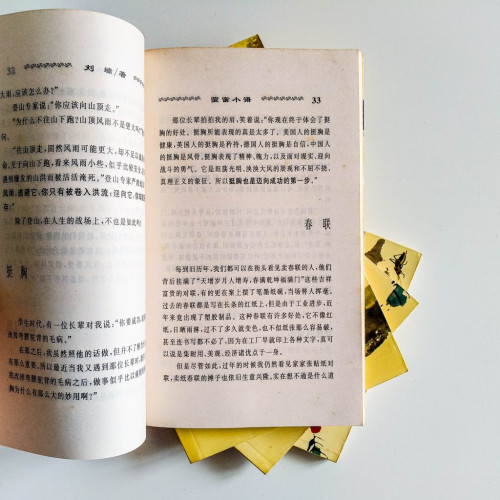 33
刘墉/著
大雨,应该怎么办?”
登山专家说:“你应该向山顶走。”
“为什么不往山下跑?山顶风雨不是更大吗?”
“往山顶走,固然风雨可能更大,却不足以
命。至于向山下跑,看来风雨小些,似乎比较安
遇到爆发的山洪而被活活淹死。”登山专家严
雨,逃避它,你只有被卷入洪流;迎向它,你
除了登山,在人生的战场上,不也是如此吗?
挺胸
学生时代,有一位长辈对我说:“你要
弯腰驼背的毛病。”
在那之后,我虽然照他的话做,但并不了
有那么重要。所以最近当我又遇到那位长辈
改掉弯腰驼背的毛病之后,做事似乎比以前
胸为什么有那么大的妙用啊?”
萤窗小语
33
那位长辈拍拍我的肩,笑着说:“你现在终于体会了挺
胸的好处。挺胸所能表现的真是太多了。美国人的挺胸是
健美,英国人的挺胸是矜持,德国人的挺胸是自信,中国人
的挺胸是风骨。挺胸表现了精神、魄力,以及面对现实、迎向
战斗的勇气。它是坦荡光明、泱泱大风的展现和不屈不挠、
真理正义的象征。所以挺胸也是迈向成功的第一步。”
春联
每到旧历年,我们都可以在街头看见卖春联的人,他们
背后挂满了“天增岁月人增寿,春满乾坤福满门”这些吉祥
富贵的对联,有的更在案上摆了笔墨纸砚,当场替人挥毫。
过去的春联都是写在长条的红纸上,但是由于工业进步,近
年来竟出现了塑胶制品。这种春联有许多好处,它不像红
纸,日晒雨淋,过不了多久就变色,也不似纸张那么容易破,
甚至连书写都不必了,因为在工厂早就印上各种文字,真可
以说是集耐用、美观、经济诸优点于一身。
但是尽管如此,过年的时候我仍然看见家家张贴纸对
联,卖纸春联的摊子也依旧生意兴隆。实在想不通是什么道